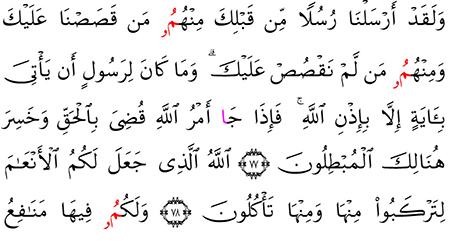 وَلَقَدْ أَرْسَلْنَا رُسُلًا مِّن قَبْلِكَ مِنْهُمُۥ مَن قَصَصْنَا عَلَيْكَ
وَمِنْهُمُۥ مَن لَّمْ نَقْصُصْ عَلَيْكَ ۗ وَمَا كَانَ لِرَسُولٍ أَن يَأْتِىَ
بِـَٔايَةٍ إِلَّا بِإِذْنِ ٱللَّهِ ۚ فَإِذَا جَا أَمْرُ ٱللَّهِ قُضِىَ بِٱلْحَقِّ وَخَسِرَ
هُنَالِكَ ٱلْمُبْطِلُونَ ٧٧ ٱللَّهُ ٱلَّذِى جَعَلَ لَكُمُ ٱلْأَنْعَـٰمَ
لِتَرْكَبُوا۟ مِنْهَا وَمِنْهَا تَأْكُلُونَ ٧٨ وَلَكُمُۥ فِيهَا مَنَـٰفِعُ